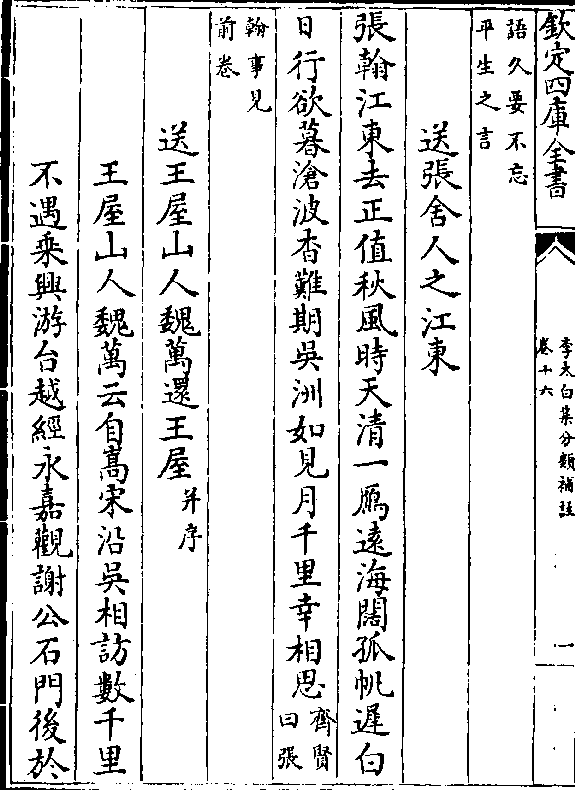 欽定四庫全書
李太白集分類補註
卷十六
一
語久要不忘
平生之言
送張舍人之江東
張翰江東去正值秋風時天清一鴈遠海闊孤帆遲白
日行欲暮滄波杳難期吳洲如見月千里幸相思齊賢
曰張
翰事見
前卷
送王屋山人魏萬還王屋并序
王屋山人魏萬云自嵩宋沿吳相訪數千里
不遇乗興游台越經永嘉觀謝公石門後於